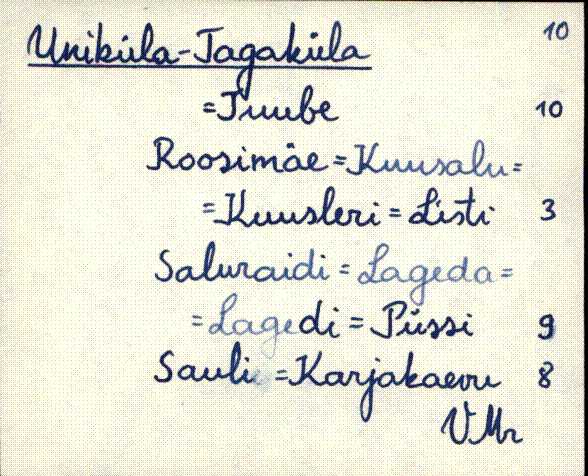 Uniküla-Tagaküla 10
=Juube 10
Roosimäe=Kuusalu=
=Kuusleri=Listi 3
Saluraidi=Lageda=
=Lagedi=Püssi 9
Sauli =Karjakaevu 8
VMr